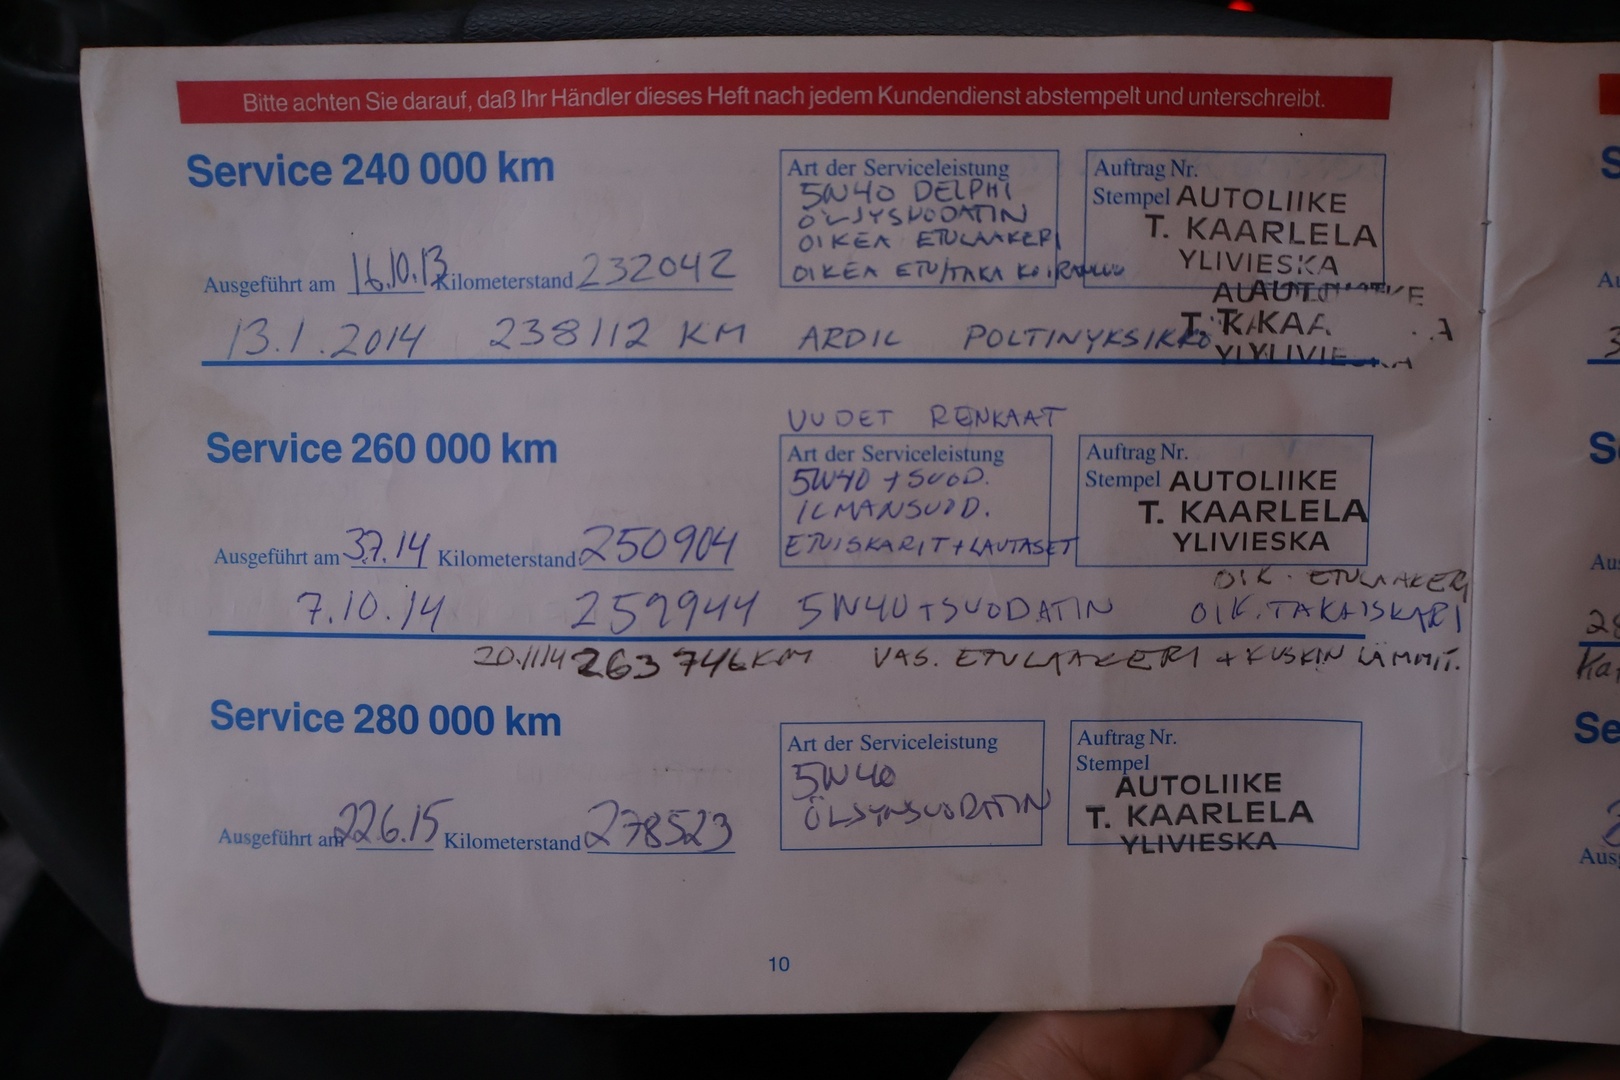 Bitte achten Sie darauf, daß Ihr Händler dieses Heft nach jedem Kundendienst abstempelt und unterschreibt.
Service 240 000 km
Art der Serviceleistung
5W40 DELPHI
ÖLJYSUODATIN
OIKEA ETULAAKERI
OIKEA ETU/TAKA
Auftrag Nr.
Stempel AUTOLIIKE
T. KAARLELA
YLIVIESKA
Ausgeführt am 16.10.13 Kilometerstand 232042
13.1.2014 238112 KM ARDIL POLTINYKSIKKÖ
Service 260 000 km
UUDET RENKAAT
Art der Serviceleistung
5W40 + SUOD.
ILMANSUOD.
ETUISKARIT + LAUTASET
Auftrag Nr.
Stempel AUTOLIIKE
T. KAARLELA
YLIVIESKA
Ausgeführt am 3.7.14 Kilometerstand 250904
OIK. ETULAAKERI
7.10.14 259944 5W40 + SUODATIN OIK. TAKAISKARI
263 746 KM VAS. ETULAAKERI + KUSKIN LÄMMIT.
Service 280 000 km
Art der Serviceleistung
5W40
ÖLJYNSUODATIN
Auftrag Nr.
Stempel
AUTOLIIKE
T. KAARLELA
YLIVIESKA
Ausgeführt am 22.6.15 Kilometerstand 278523
10